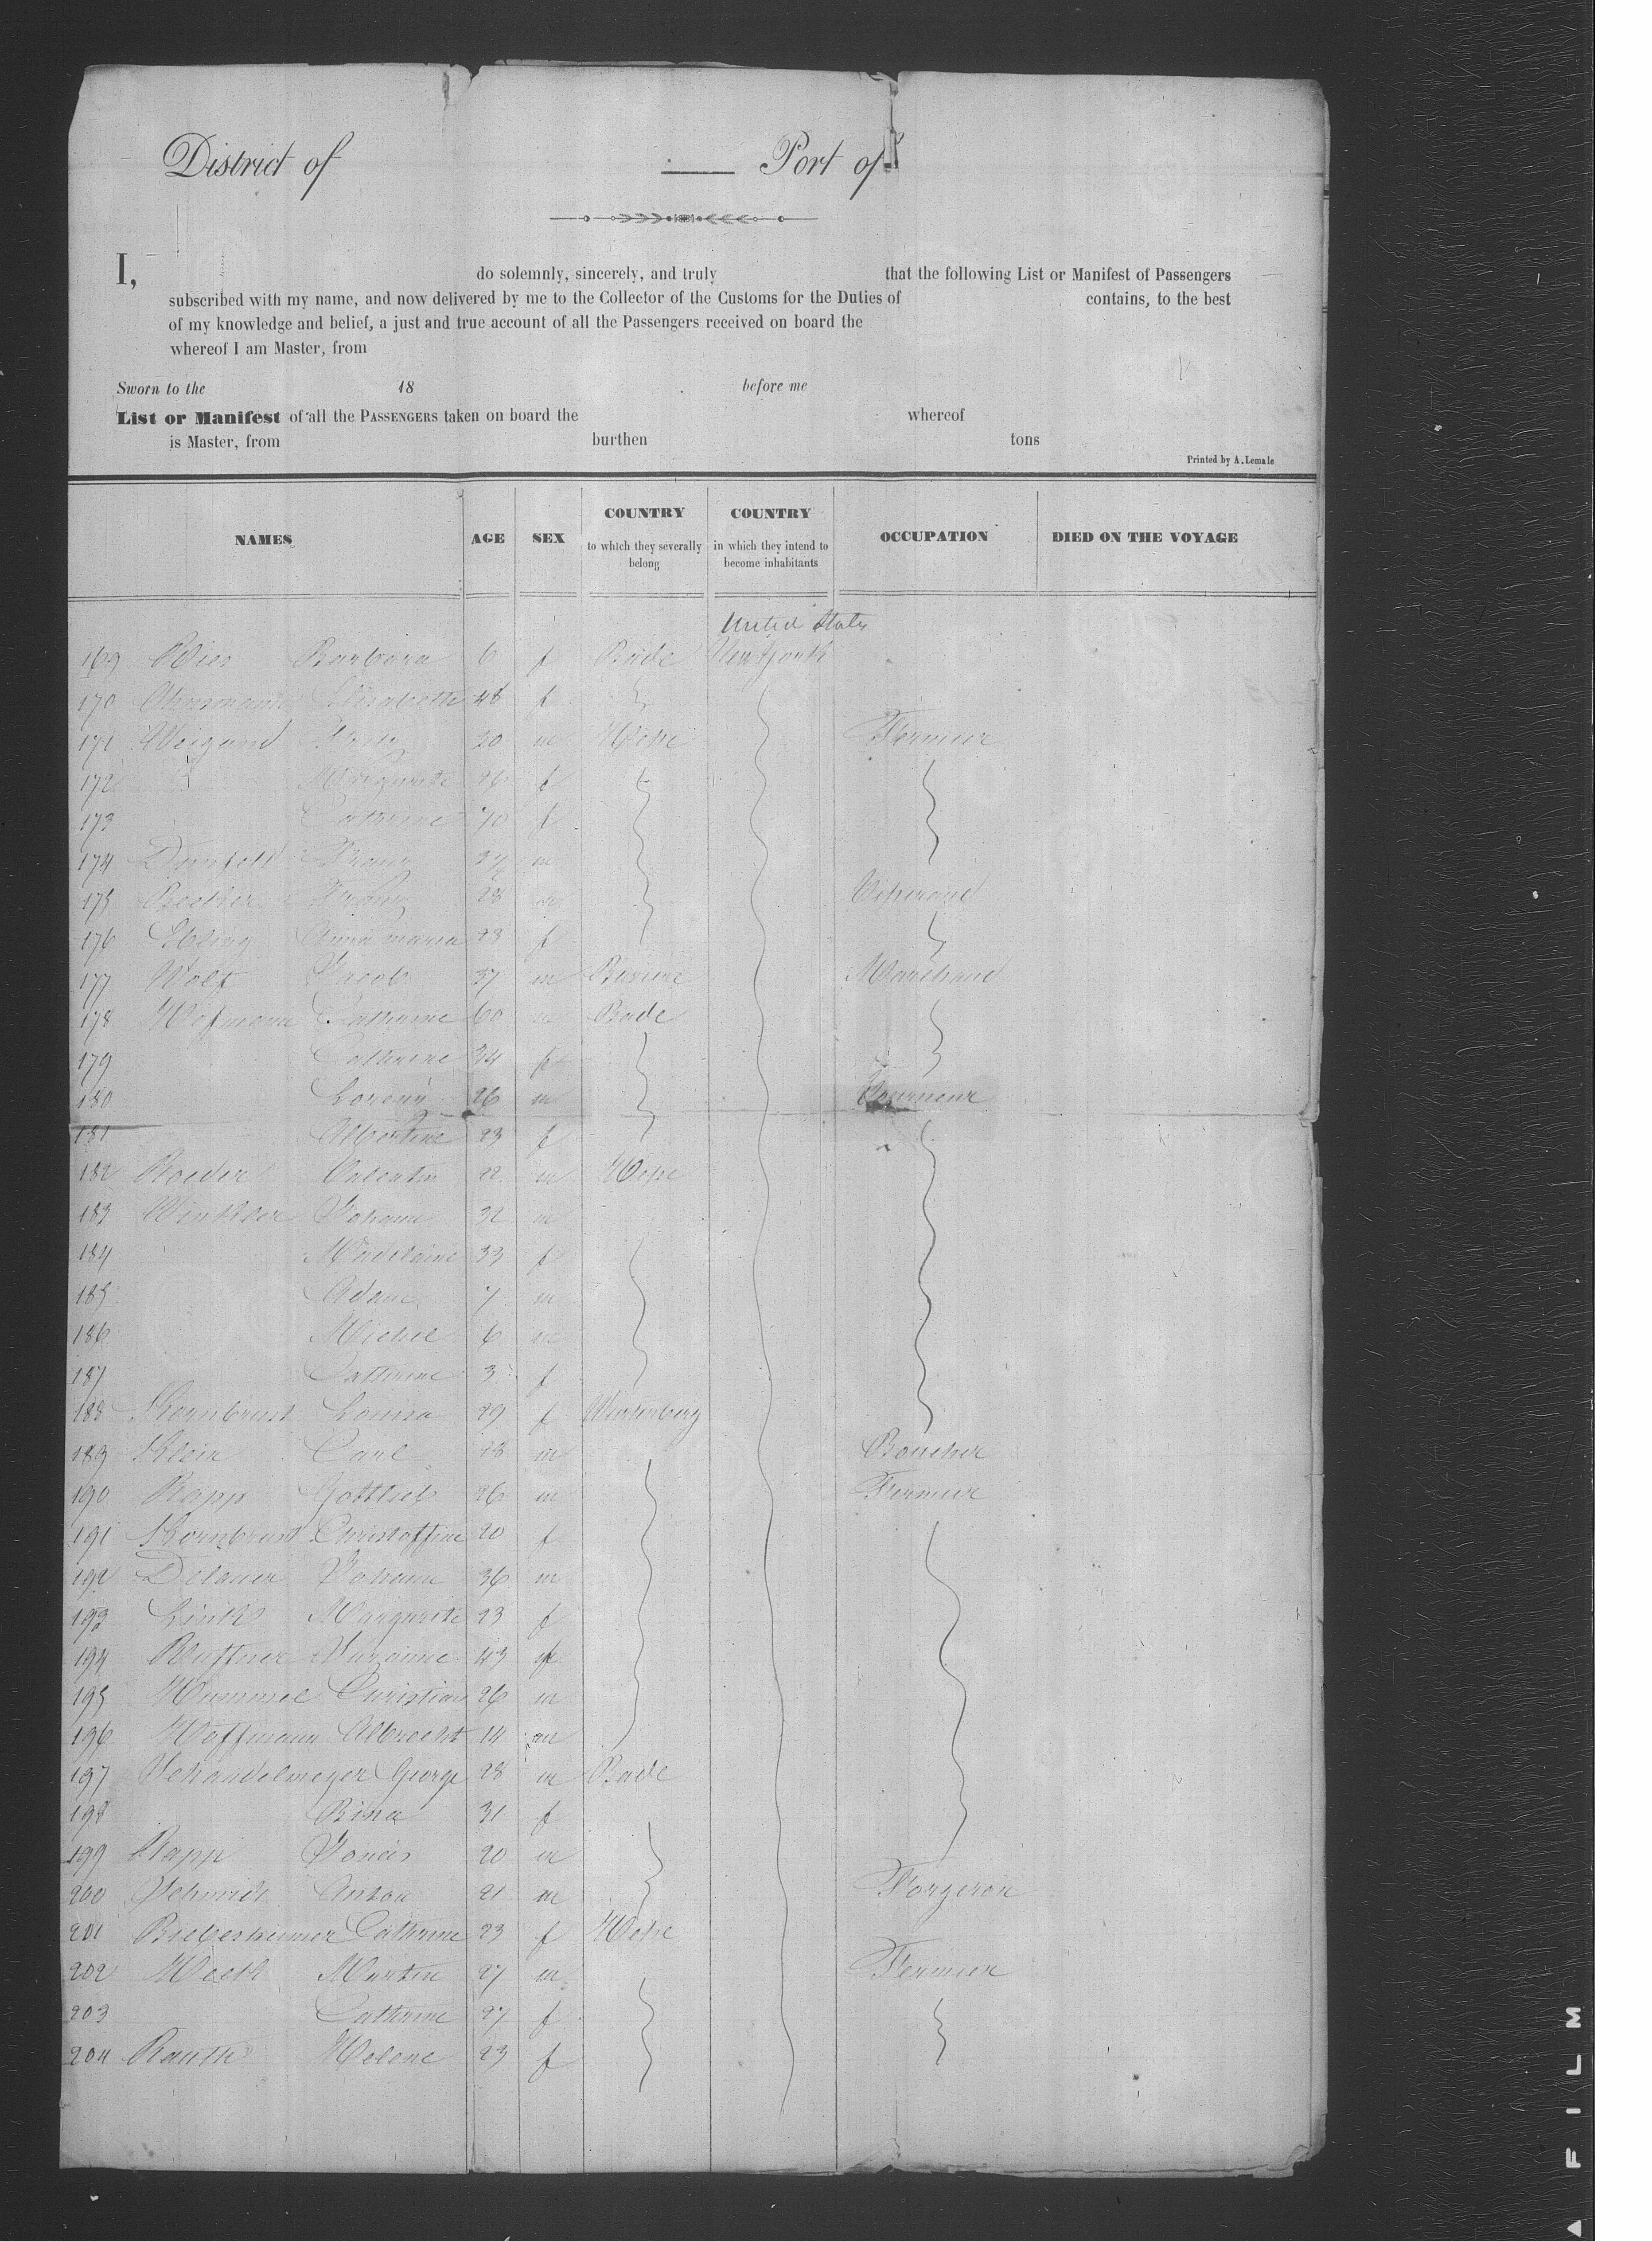 District of Port of
I, do solemnly, sincerely, and truly that the following List or Manifest of Passengers
subscribed with my name, and now delivered by me to the Collector of the Customs for the Duties of contains, to the best
of my knowledge and belief, a just and true account of all the Passengers received on board the
whereof I am Master, from
Sworn to the 18 before me
List or Manifest of all the PASSENGERS taken on board the whereof
is Master, from burthen tons
Printed by A. Lemale
NAMES AGE SEX COUNTRY to which they severally belong COUNTRY in which they intend to become inhabitants OCCUPATION DIED ON THE VOYAGE
United States
169 Barbara 6 f Bade
170 Elisabetha 48 f
171 Weigand m Hesse Fermier
172 Margarete 26 f
173 Catherine f
174 m
175 Becker Franz 28 m
176 Ebling Anna maria 23 f
177 Wolf Jacob 37 m Marchand
178 Hofmann Catherine 60 m Bade
179 Catherine 34 f
180 Lorenz 26 m Tourneur
181 Albertine 23 f
182 Roeder Valentin 22 m Hesse
183 Winkler Johann 32 m
184 Madelaine 33 f
185 Adam 7 m
186 Michel 6 m
187 Catherine 3 f
188 Kornbrust Louisa 29 f Wurtenberg
189 Klein Carl m Boucher
190 Rapp Gottlieb 26 m Fermier
191 Kornbrust Christoffine 20 f
192 Johann 36 m
193 Link Margarete 23 f
194 43 f
195 Hummel Christian 26 m
196 Hoffmann Albrecht 14 m
197 Schandelmeyer George 28 m Bade
198 Bina 31 f
199 20 m
200 Schmidt Anton 21 m Forgeron
201 Biebesheimer Catherine 23 f Hesse
202 Martin 27 m Fermier
203 Catherine 27 f
204 Rauth Helene 23 f
FILM